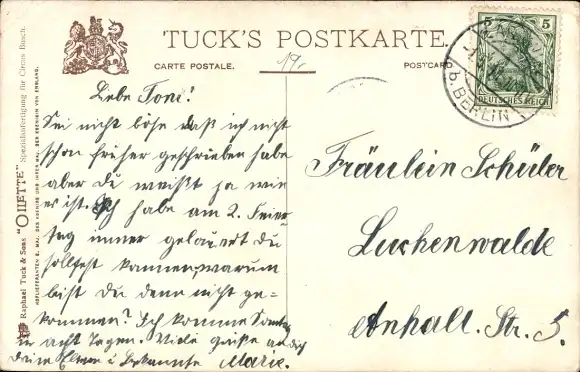 TUCK'S POSTKARTE.
CARTE POSTALE.
POSTCARD
19.
Raphael Tuck & Sons' "OILETTE" Spezialanfertigung für Circus Busch.
HOFLIEFERANTEN S. MAJ. DES KÖNIGS UND IHRER MAJ. DER KÖNIGIN VON ENGLAND.
5 5
DEUTSCHES REICH
b. BERLIN
Liebe Toni!
Sei nicht böse daß ich nicht
schon früher geschrieben habe
aber du weißt ja wie
es ist. Ich habe am 2. Feier-
tag immer gelauert du
solltest kommen, warum
bist du denn nicht ge-
kommen? Ich komme Sonntag
in acht Tagen. Viele Grüße an dich
deine Eltern u Bekannte Marie.
Fräulein Schüler
Luckenwalde
Anhalt. Str. 5.